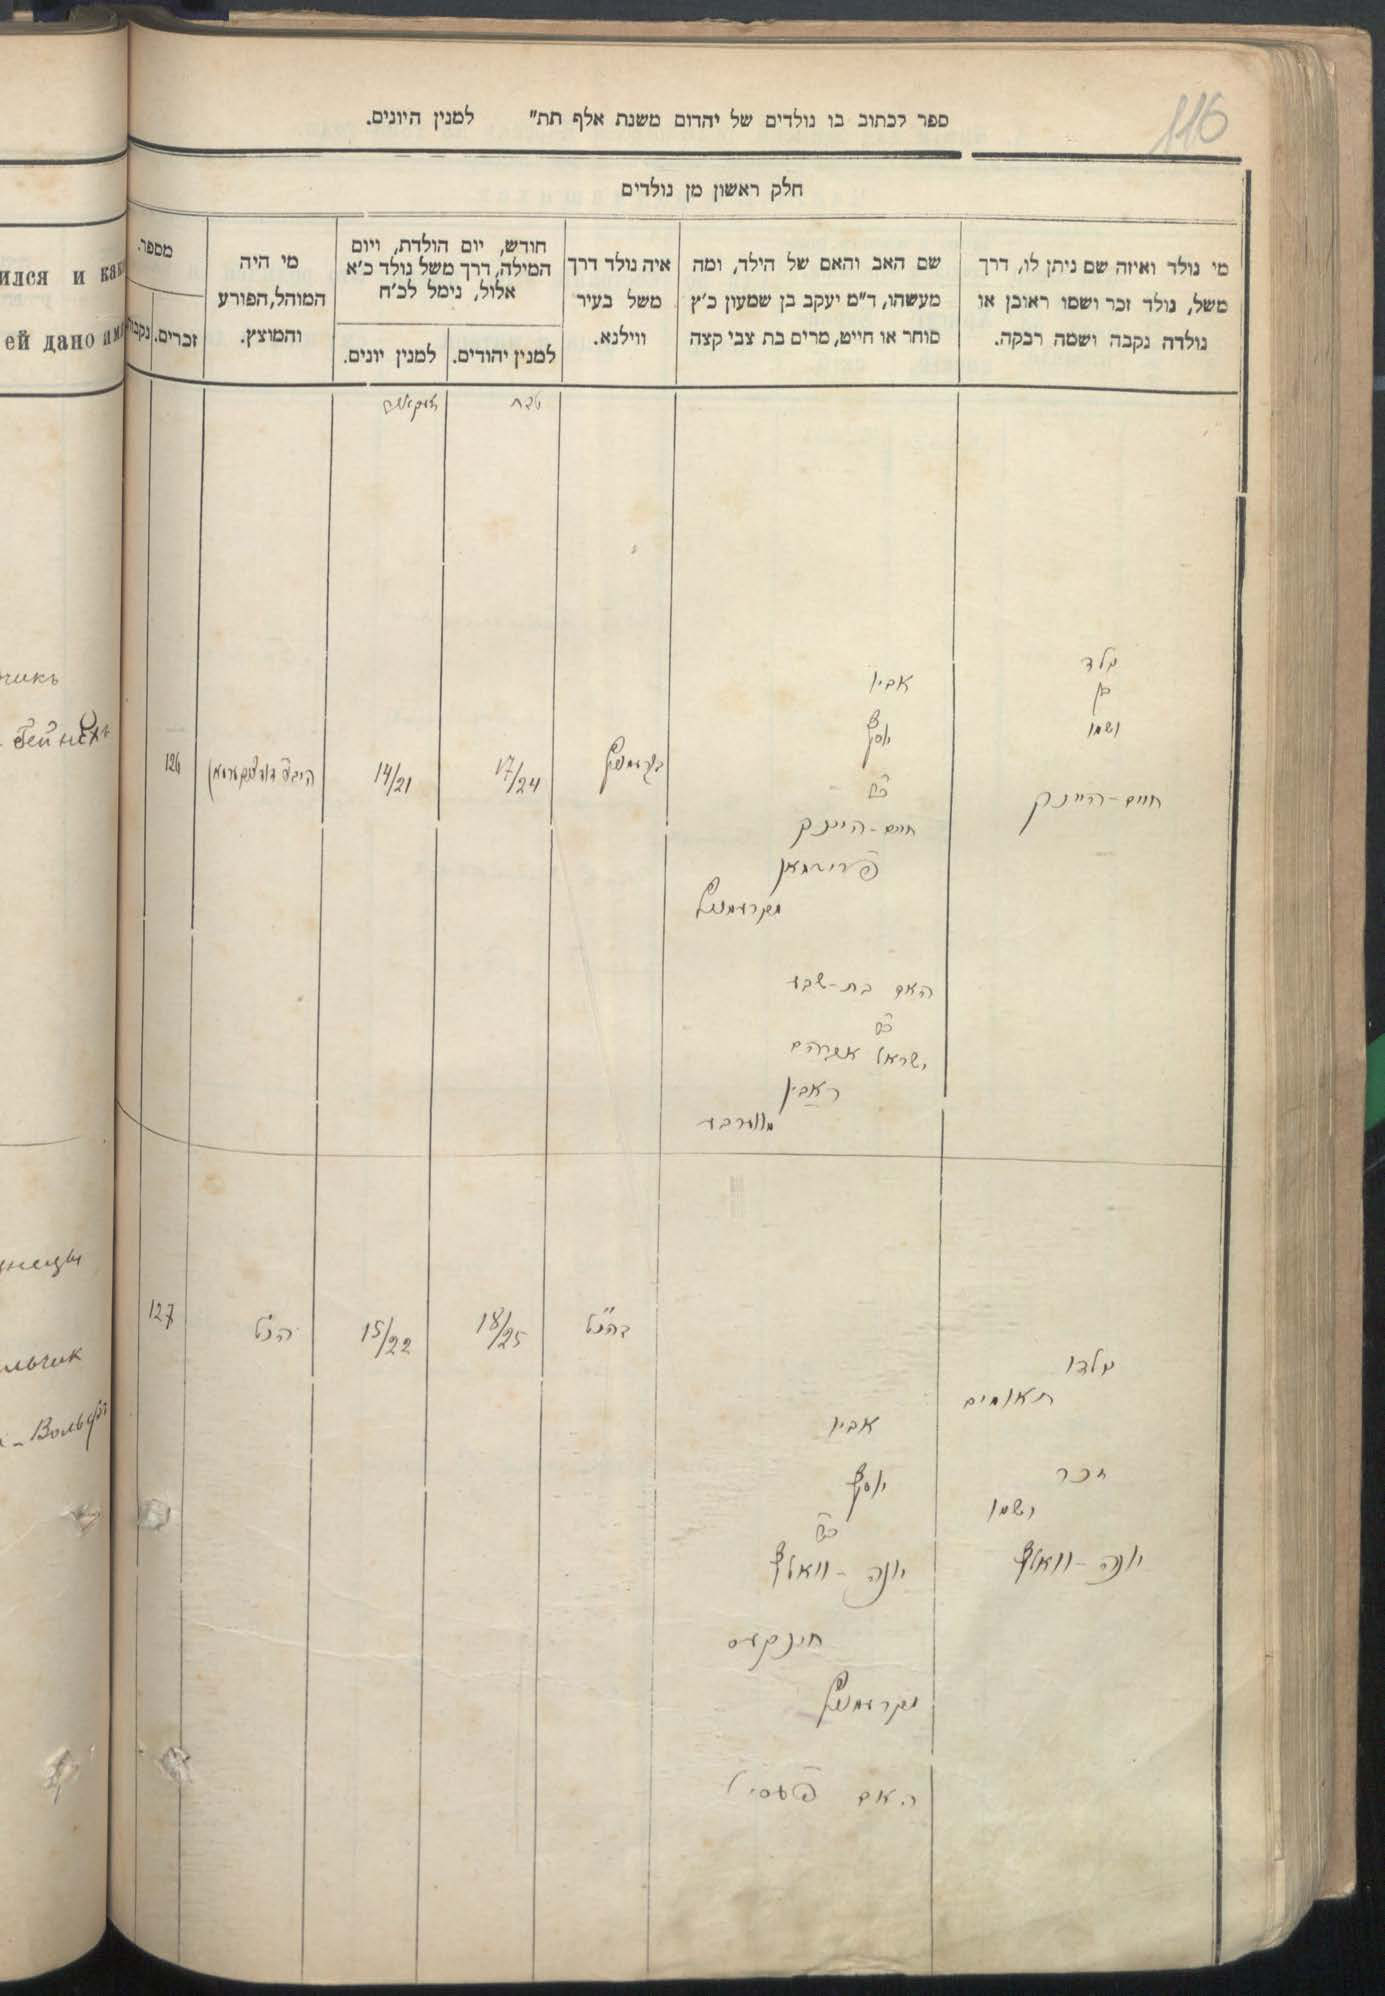 116
ספר לכתוב בו נולדים של יהדום משנת אלף תת״ למנין היונים.
חלק ראשון מן נולדים
מי נולד ואיזה שם ניתן לו, דרך
משל, נולד זכר ושמו ראובן או
נולדה נקבה ושמה רבקה.
שם האב והאם של הילד, ומה
מעשהו, ד״מ יעקב בן שמעון כ׳ץ
סוחר או חייט, מרים בת צבי קצה
איה נולד דרך
משל בעיר
ווילנא.
חודש, יום הולדת, ויום
המילה, דרך משל נולד כ׳א
אלול, נימל לכ׳ח
למנין יהודים.
למנין יונים.
מי היה
המוהל, הפורע
והמוצץ.
מספר.
זכרים.
נקבות
טבת
ילד
בן
ושמו
חיים-הייניק
אביו
יוסף
חיים-הייניק
האם בת-שבע
ישראל אברהם
ראבין
17/24
14/21
126
ילדו
תאומים
זכר
ושמו
יונה-וואלף
אביו
יוסף
יונה-וואלף
האם פעסיל
כהנ״ל
18/25
15/22
הנ״ל
127
ился и как
ей дано им
чикъ
Гейнехъ
льчик
-Вольфъ